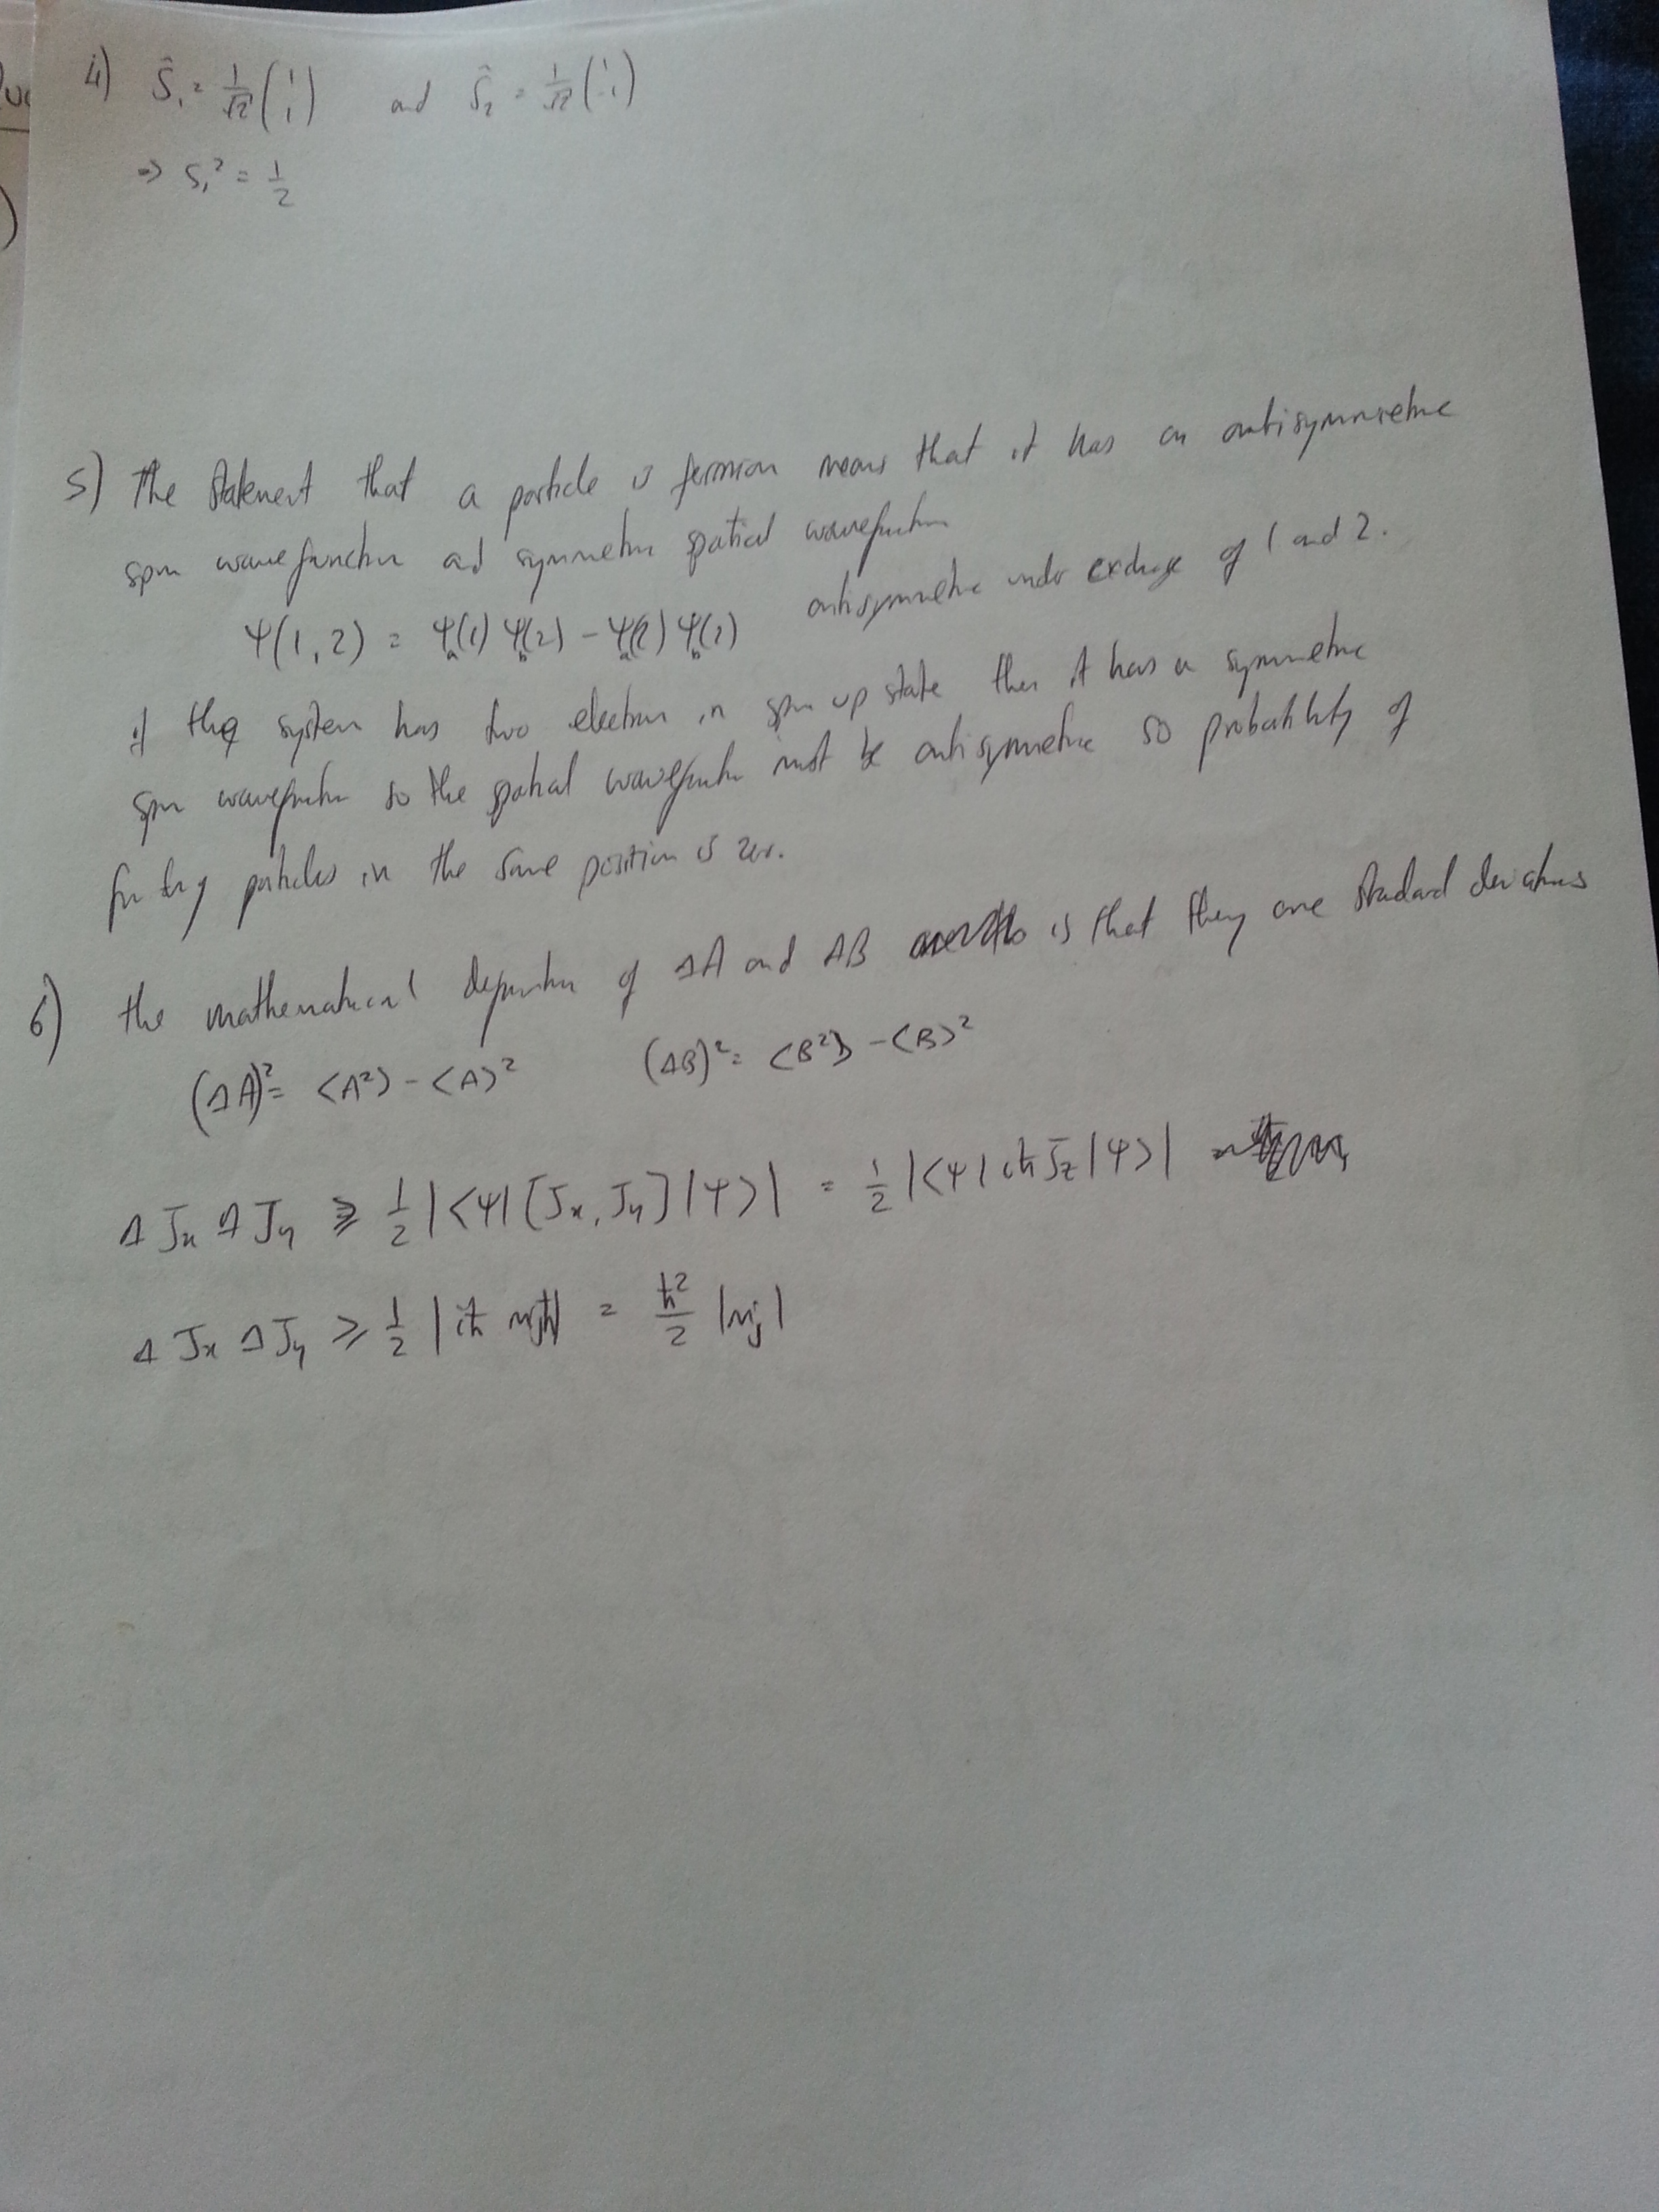 4) Ŝ₁ = 1/√2 (1 1) and Ŝ₂ = 1/√2 (1 -1)
⇒ S₁² = 1/2
5) The statement that a particle is fermion means that it has an antisymmetric
spin wavefunction and symmetric spatial wavefunction
Ψ(1,2) = Ψa(1) Ψb(2) - Ψa(2) Ψb( ) antisymmetric under exchange of 1 and 2.
if the system has two electron in spin up state then it has a symmetric
spin wavefunction so the spatial wavefunction must be antisymmetric so probability of
particles in the same position is zero.
6) the mathematical definition of ΔA and ΔB is that they are standard deviations
(ΔA)² = <A²> - <A>² (ΔB)² = <B²> - <B>²
ΔJx ΔJy ≥ 1/2 |<Ψ| [Jx, Jy] |Ψ>| = 1/2 |<Ψ| iħ Jz |Ψ>|
ΔJx ΔJy ≥ 1/2 |iħ mjħ| = ħ²/2 |mj|